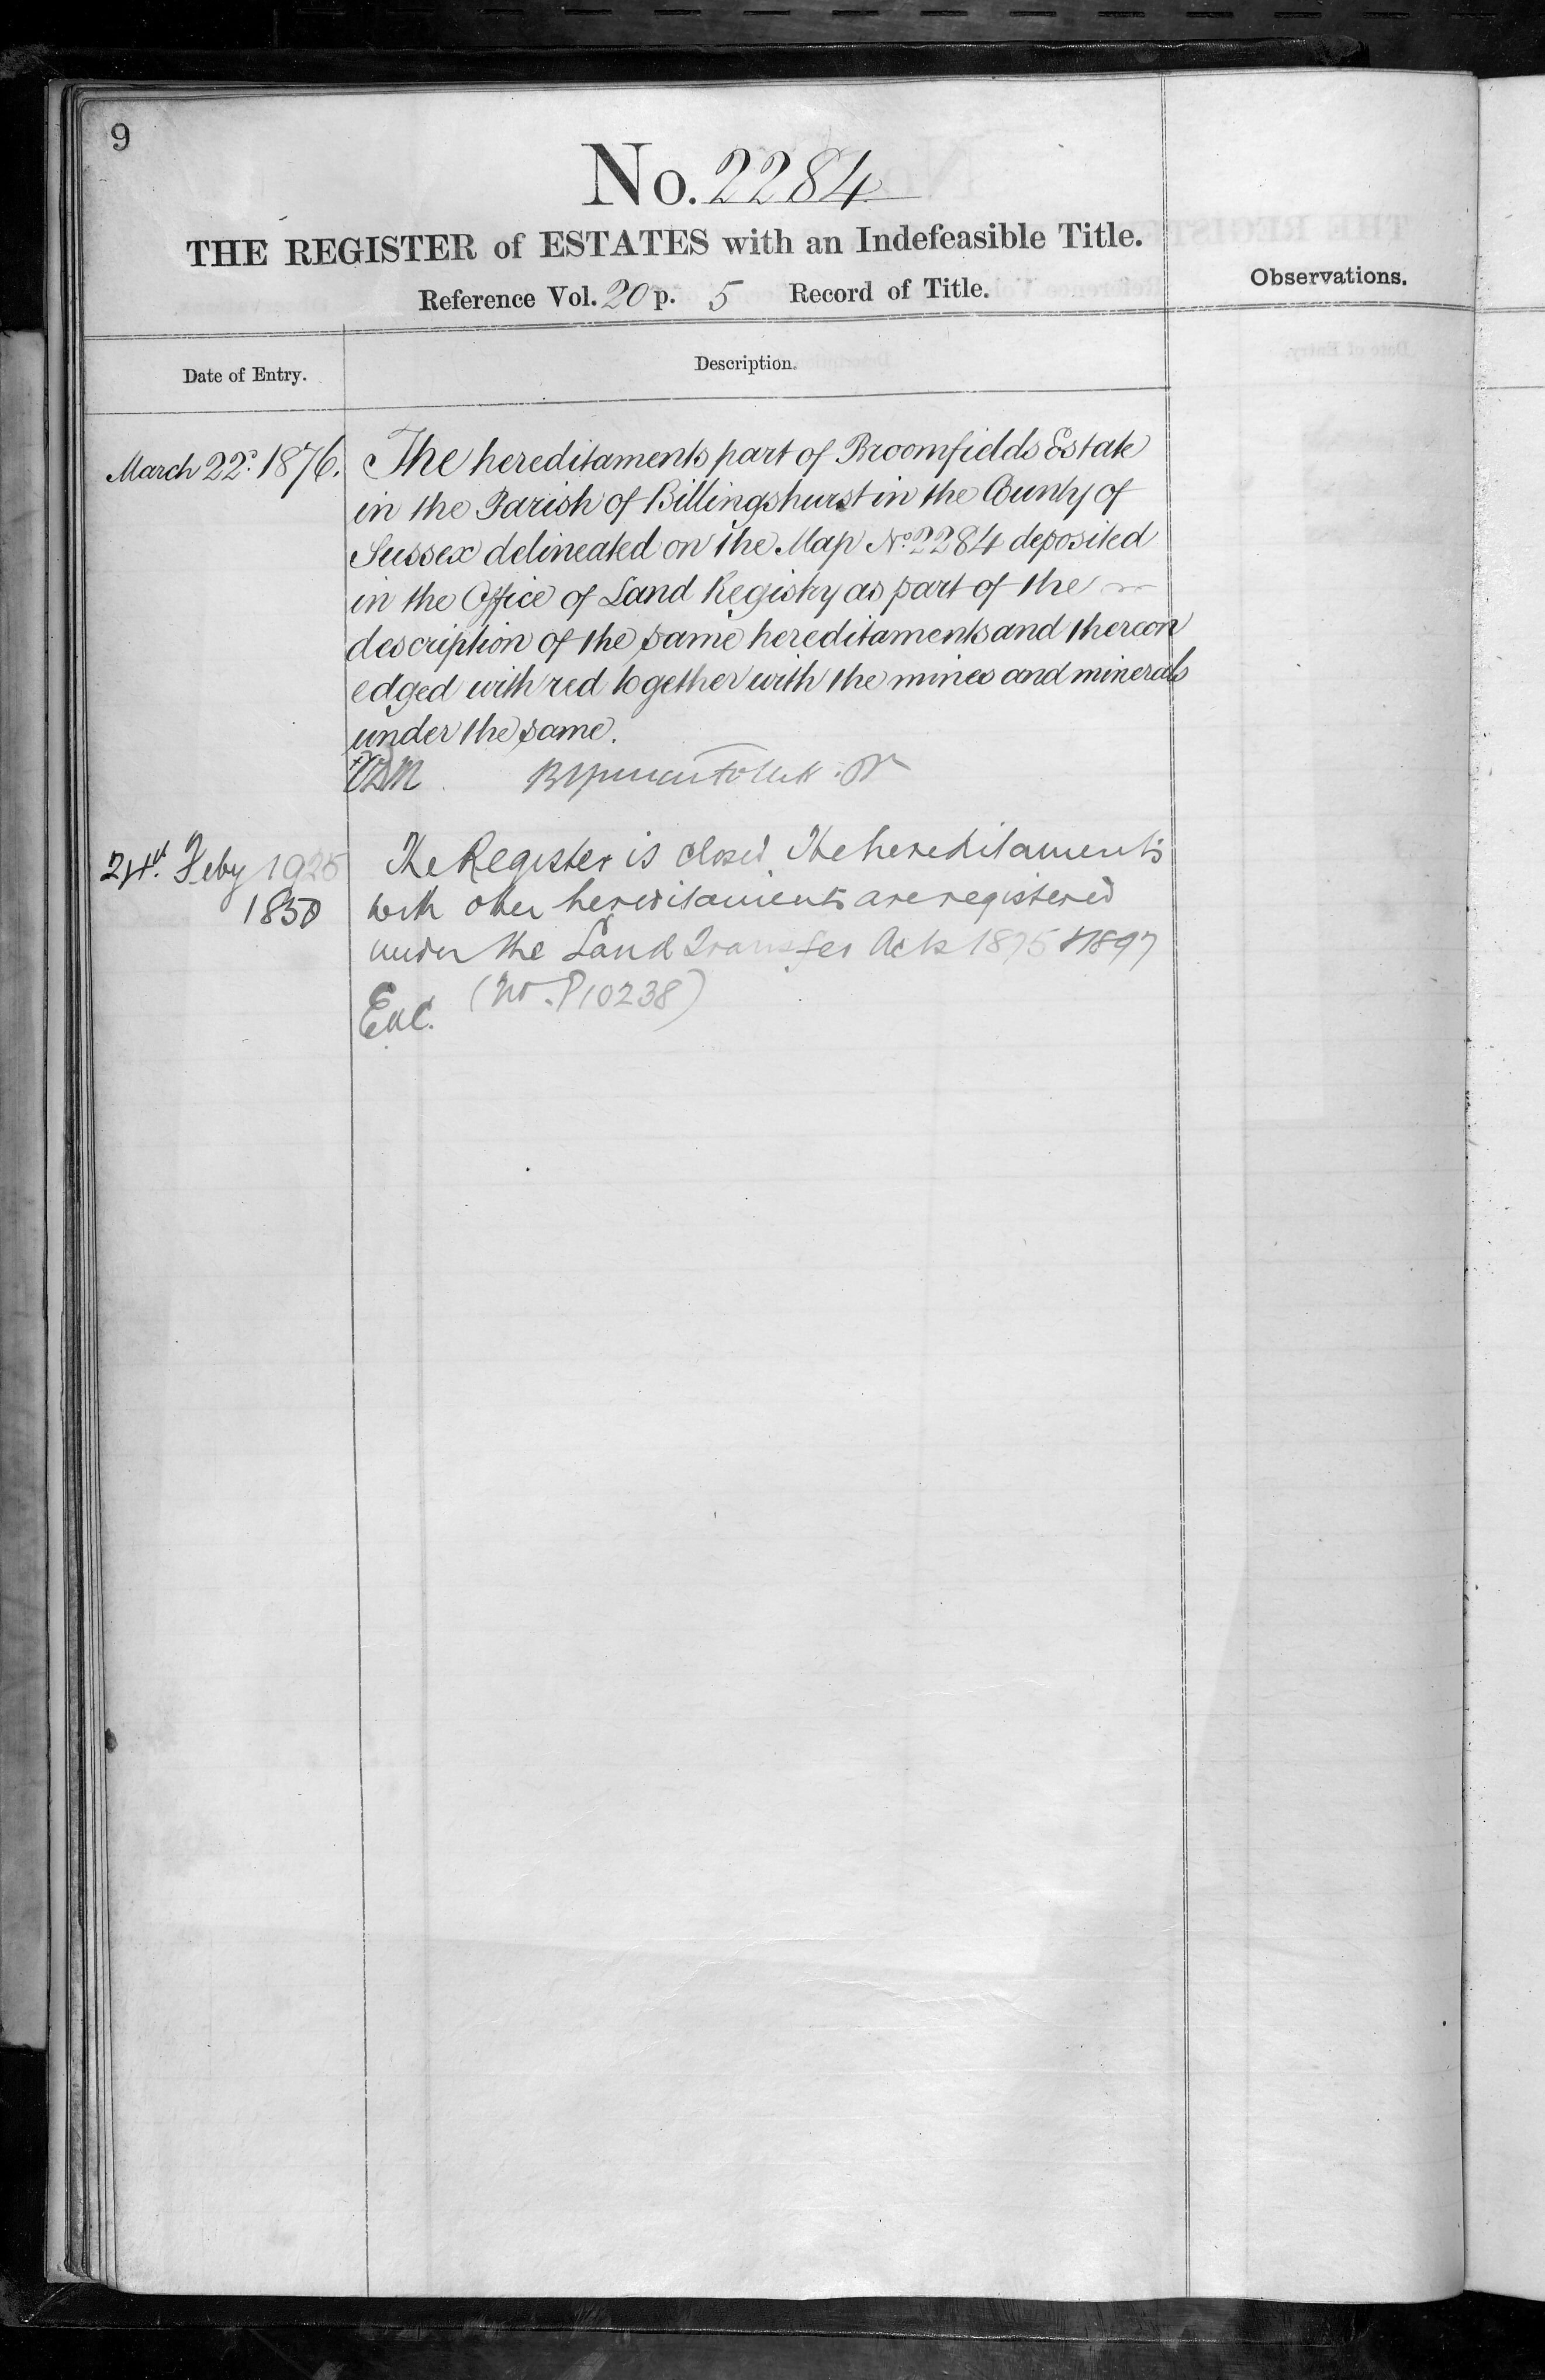 9
No. 2284
THE REGISTER of ESTATES with an Indefeasible Title.
Reference Vol. 20 p. 5 Record of Title.
Observations.
Date of Entry.
Description.
March 22d. 1876.
The hereditaments part of Broomfields Estate
in the Parish of Billingshurst in the County of
Sussex delineated on the Map No. 2284 deposited
in the Office of Land Registry as part of the
description of the same hereditaments and thereon
edged with red together with the mines and minerals
under the same.
24th. Feby 1925
1850
The Register is closed The hereditaments
with other hereditaments are registered
under the Land Transfer Acts 1875 & 1897
(No. P10238)